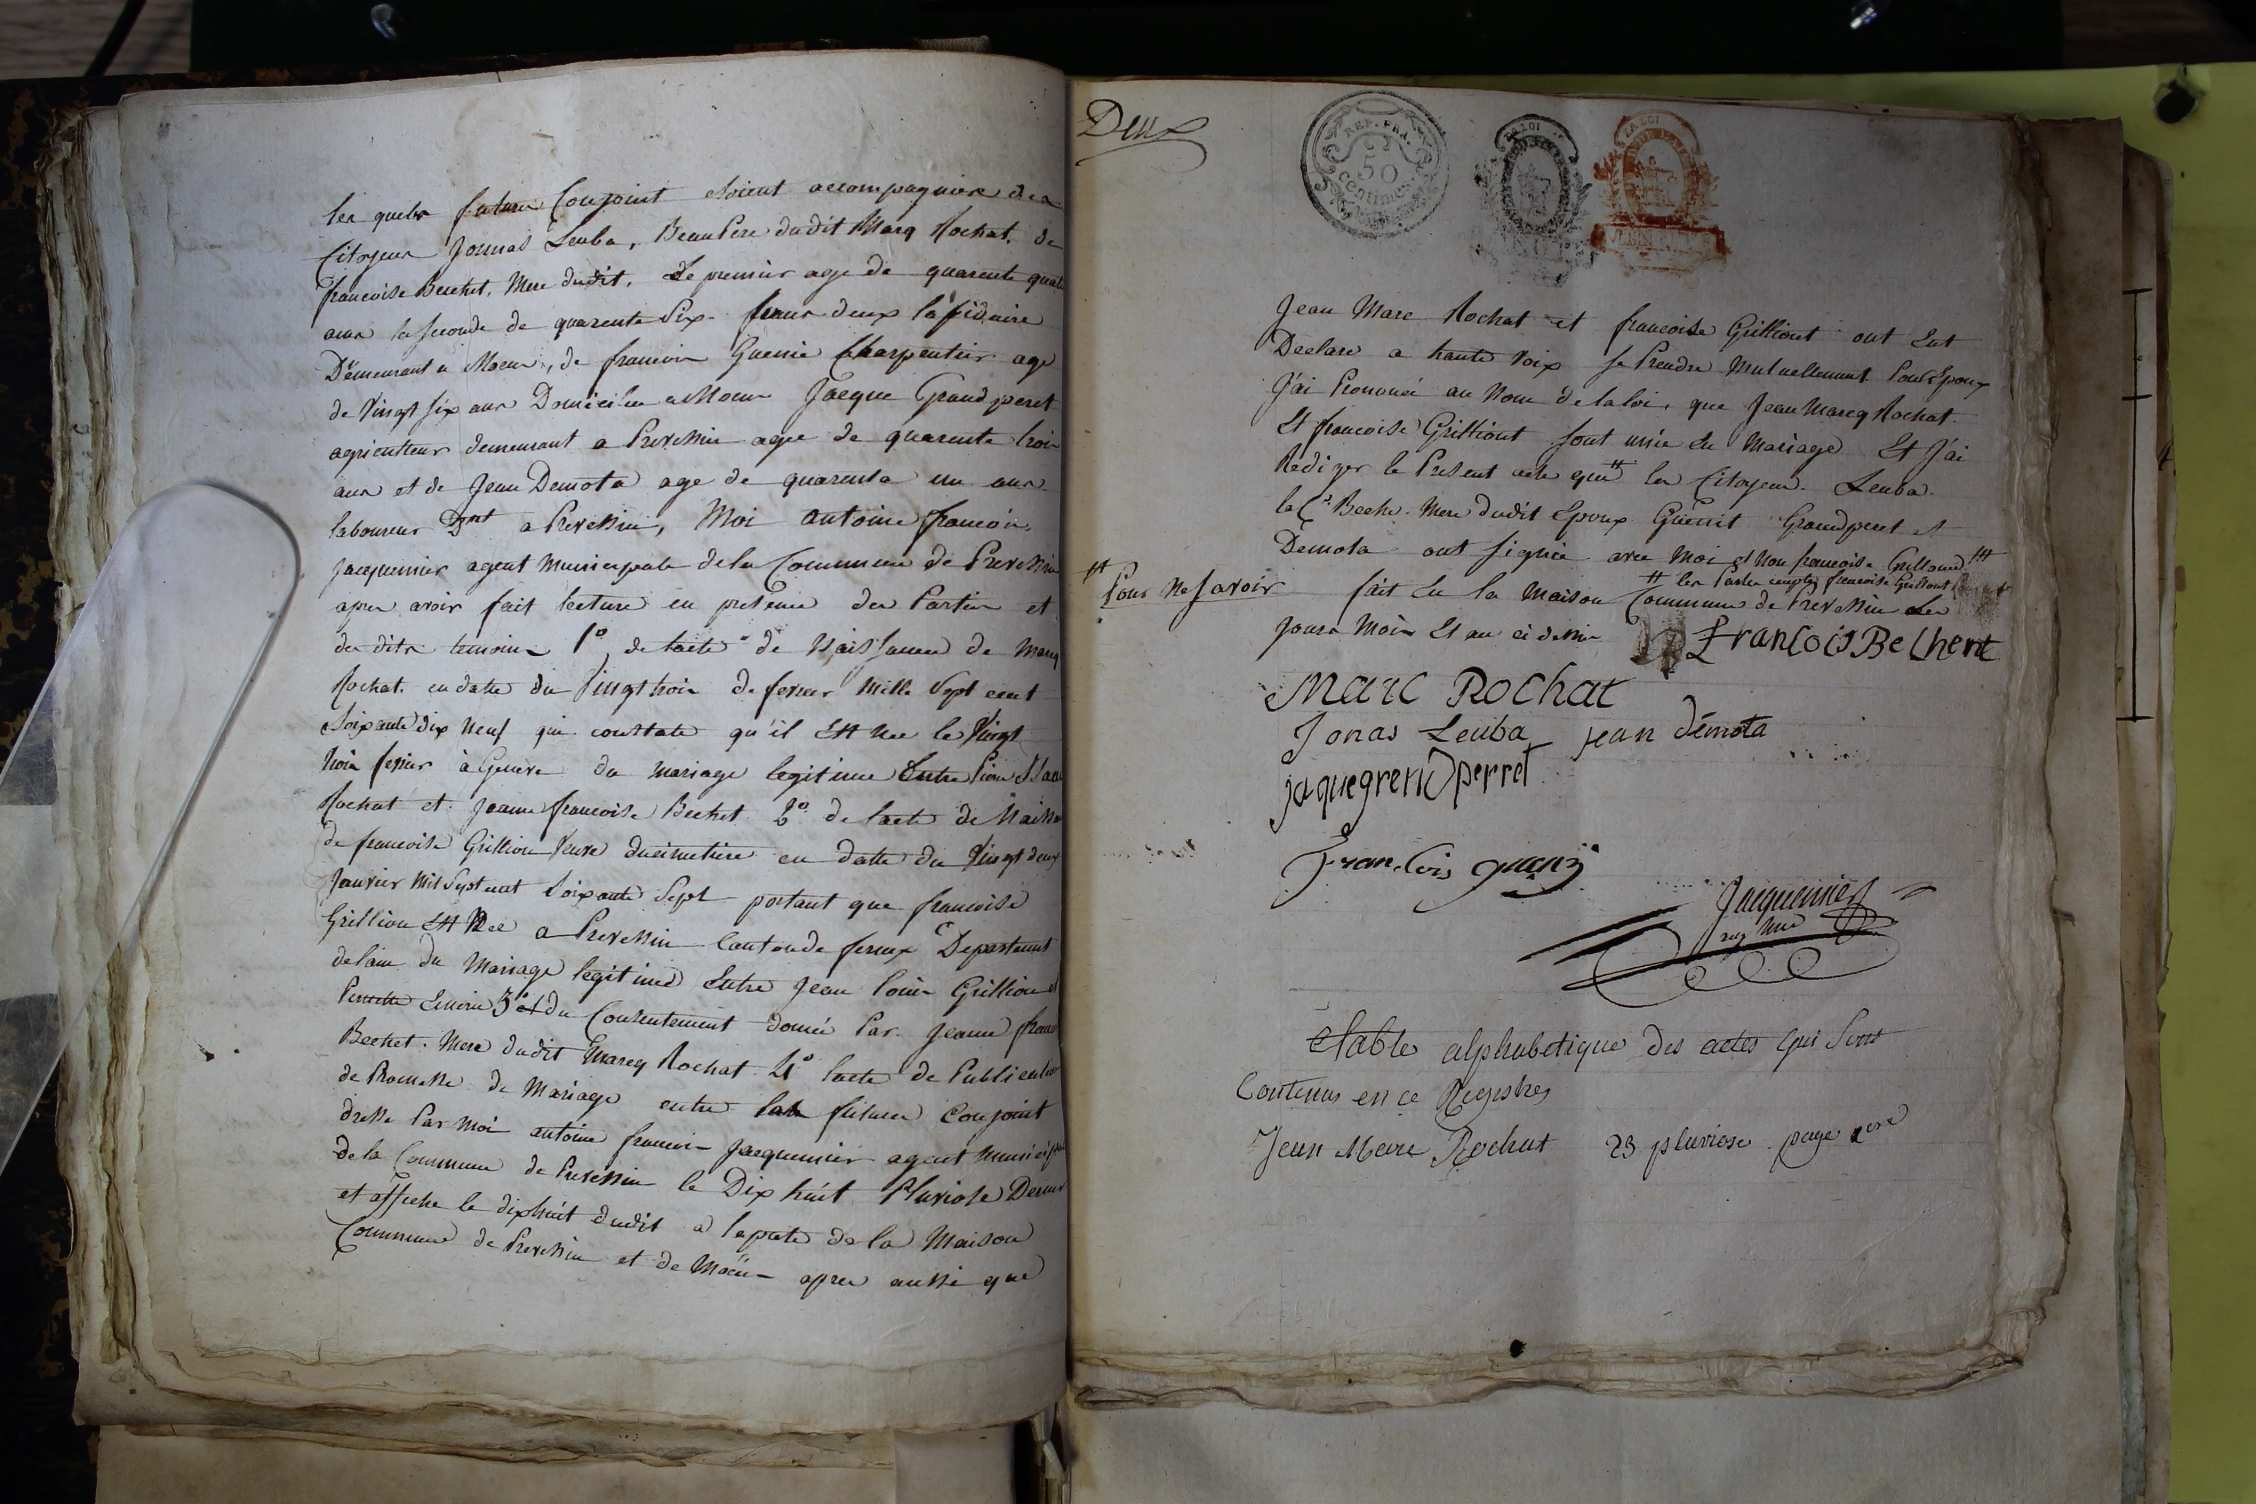 les quels futurs Conjoint etoient accompagniee des
Citoyens Jonnas Leuba, Beau Pere dudit Marq Rochat, de
francoise Bechet, Mere dudit, Le premier age de quarente quatr
ans la seconde de quarente six tous deux lapidaire
Demeurant a Moens, de francois Guenie Charpentier age
de Vingt six ans Domicilie a Moens Jacque Grandperet
agriculteur demeurant a Prevessin agee de quarente trois
ans et de Jean Demota age de quarente un ans
laboureur Dmt a Prevessin, Moi antoine francois
Jacquemier agent Municipale de la Commune de Prevessin
apres avoir fait lecture en presence des Parties et
des dits temoins 1º de lacte de Naissance de Marq
Rochat en datte du Vingt trois de fevrier Mille Sept cent
Soixante dix neuf qui constate qu'il Est Nee le Vingt
trois fevrier à Geneve du mariage legitime Entre Isaac
Rochat et Jeanne francoise Bechet 2º de lacte de Naiss
de francoise Grillion Veuve ducimetiere en datte du Vingt deux
Janvier Mil Sept cent Soixante Sept portant que francoise
Grillion Est Nee a Prevessin Canton de fernex Departement
de lain du Mariage legitime Entre Jean Louis Grillion et
3º du Consentement donnée Par Jeanne franc
Bechet Mere dudit Marcq Rochat 4º lacte de Publication
de Promesse de Mariage entre les futures Conjoint
dresse Par Moi antoine francois Jacquemier agent Municipa
de la Commune de Prevessin le Dix huit Pluviose Dernier
et affiche le dixhuit dudit a la porte de la Maison
Commune de Prevessin et de Moën apres aussi que
Deux
REP. FRA.
50
centimes
LA LOI
LA LOI
Jean Marc Rochat et francoise Grilliont ont Eut
Declare a haute Voix se Prendre Mutuellement Pour Epoux
J'ai Prononcé au Nom de la loi, que Jean Marcq Rochat
Et francoise Grilliont sont unie En Mariage Et J'ai
Rédizer le Present acte que # les Citoyens Leuba
la Cᵉ Beche Mere dudit Epoux Guenit Grandperet et
Demota ont signée avec Moi et Non francoise Grilliond #
# Pour Ne savoir
# les Parties francoise Grilliont
fait En la Maison Commune de Prevessin Les
Jours Mois Et an ci dessus
FrancoisBechent
Marc Rochat
Jonas Leuba jean démota
jaquegrendperret
Francois guenj
Jacquemier
ag Mu
Table alphabetique des actes qui Sont
Contenus en ce Registres
Jean Marc Rochat 23 pluviose page 1ere